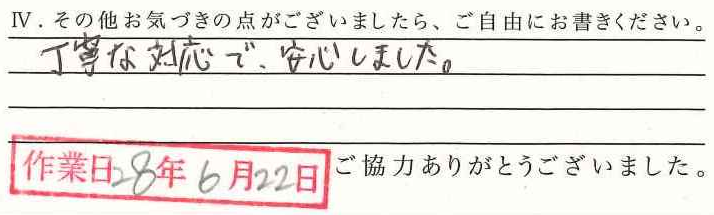 Ⅳ．その他お気づきの点がございましたら、ご自由にお書きください。
丁寧な対応で、安心しました。
作業日28年6月22日 ご協力ありがとうございました。